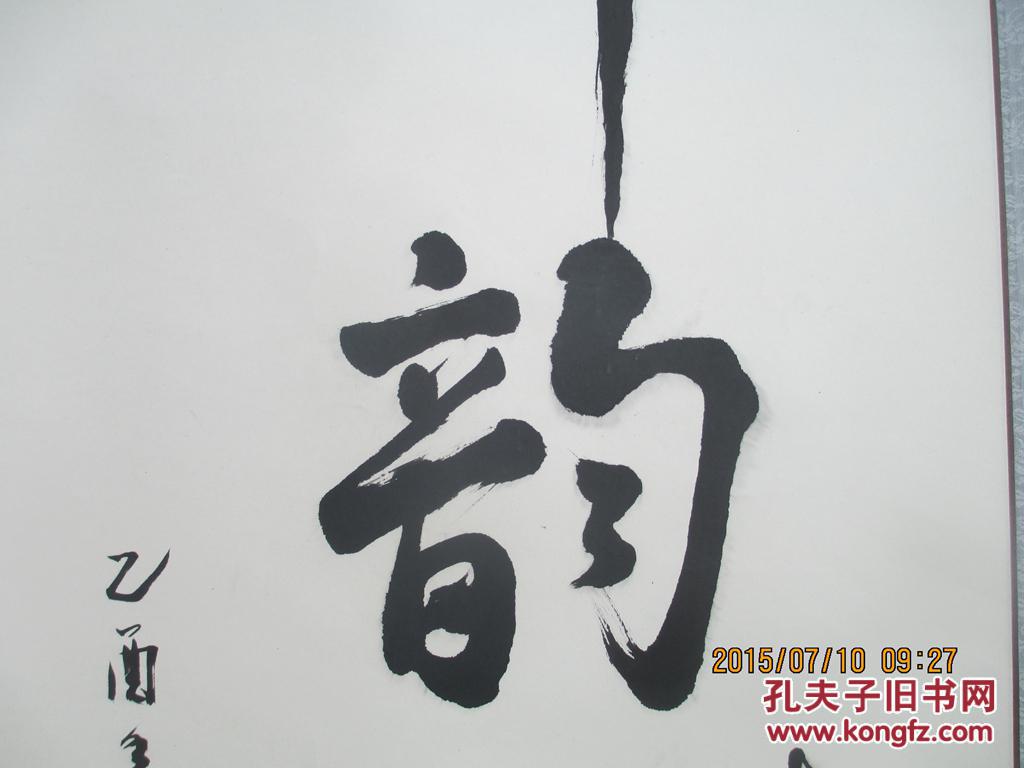 韵
乙酉年
2015/07/10 09:27
孔夫子旧书网
www.kongfz.com